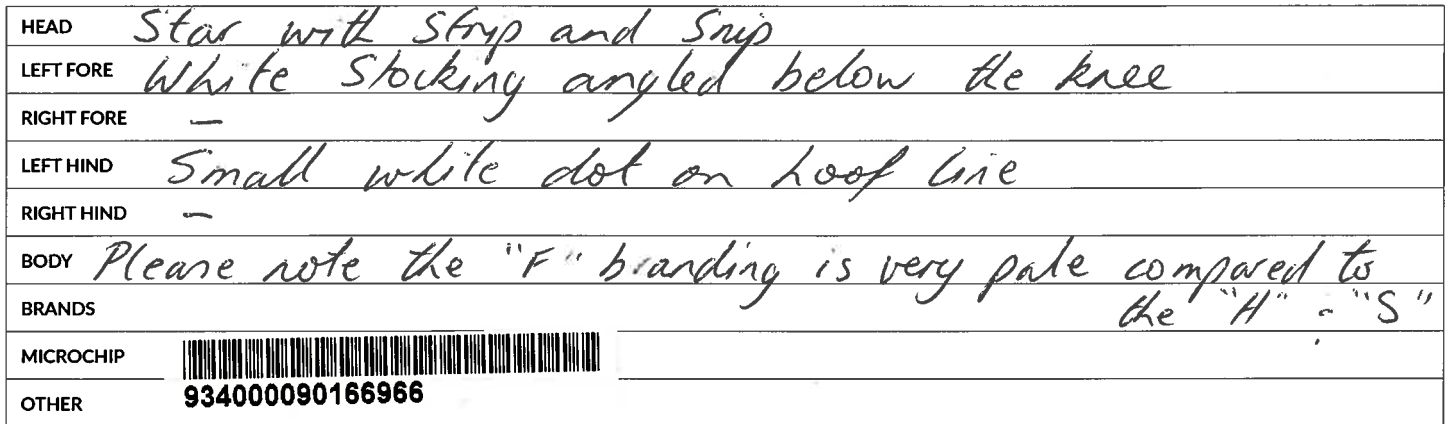 HEAD Star with Strip and Snip
LEFT FORE White Stocking angled below the knee
RIGHT FORE —
LEFT HIND Small white dot on hoof line
RIGHT HIND —
BODY Please note the "F" branding is very pale compared to
BRANDS the "H" "S"
MICROCHIP
934000090166966
OTHER